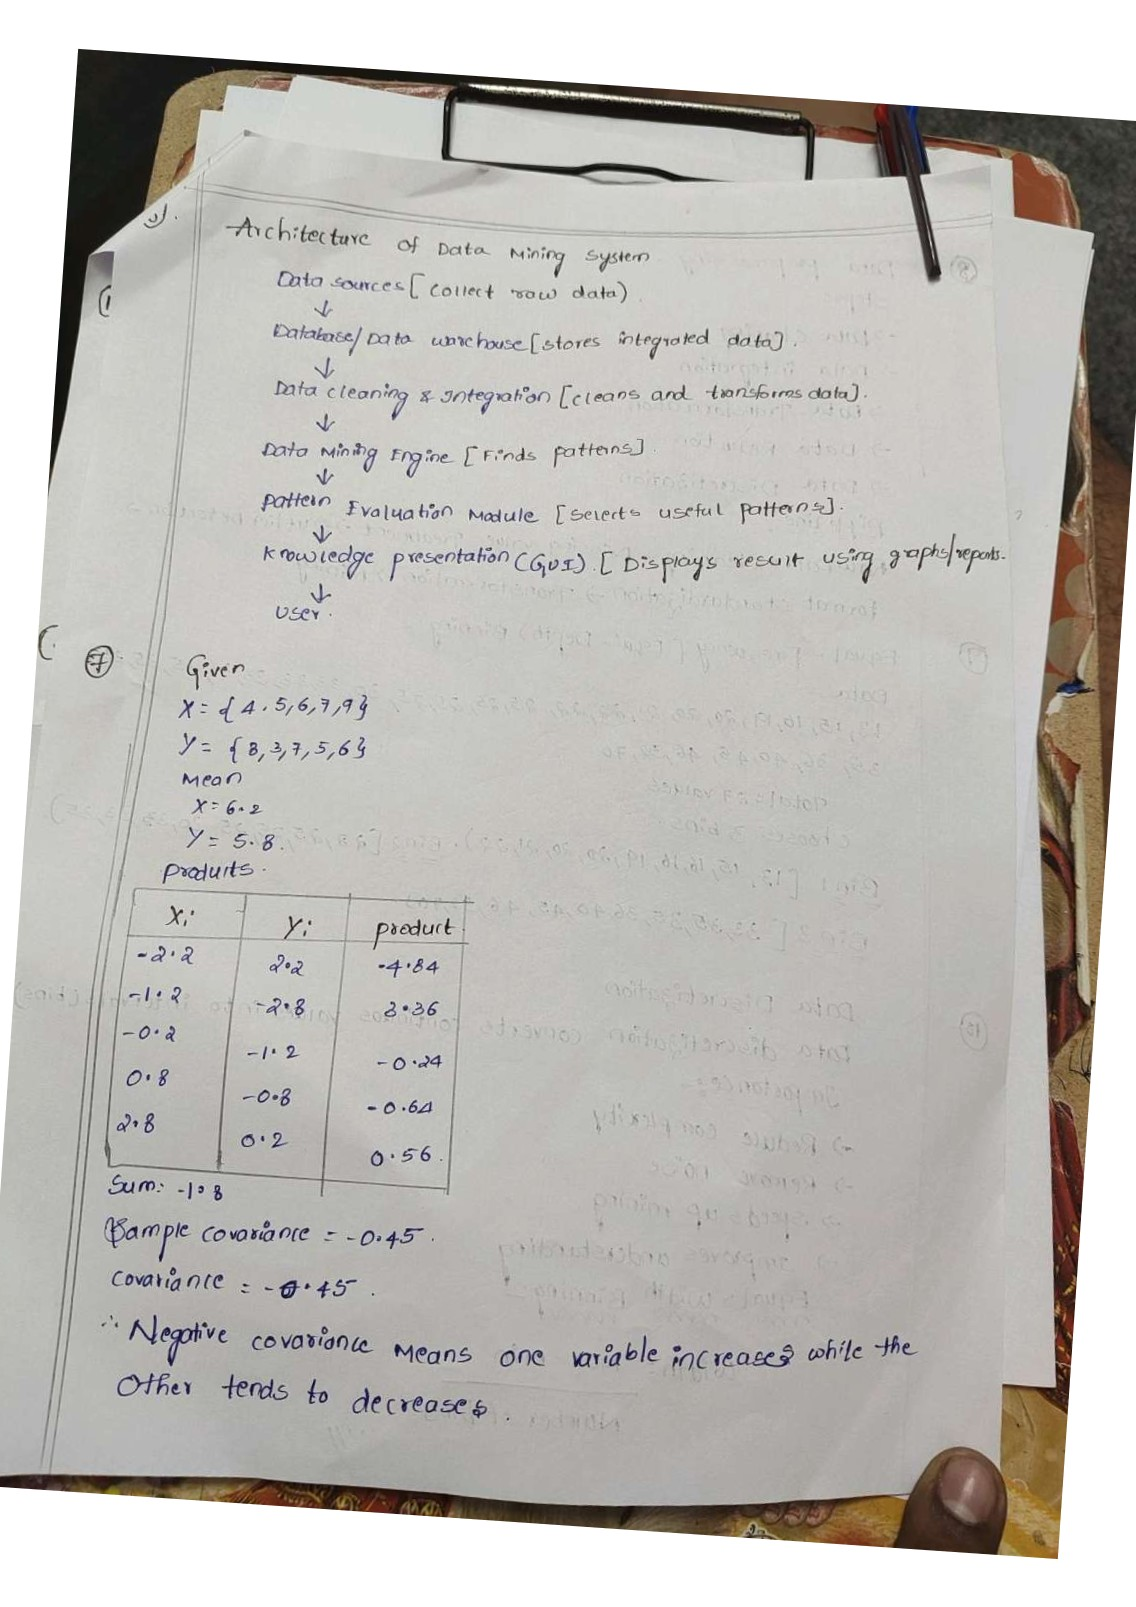 Architecture of Data Mining System
Data sources [ collect raw data)
↓
Database/Data warehouse [stores integrated data].
↓
Data cleaning & Integration [cleans and transforms data].
↓
Data Mining Engine [Finds patterns]
↓
pattern Evaluation Module [selects useful patterns].
↓
Knowledge presentation (GUI). [ Displays result using graphs/reports.
↓
User.
7
Given
X = {4.5,6,7,9}
Y = {8,3,7,5,6}
Mean
X = 6.2
Y = 5.8.
products.
Xi Yi product
-2.2 2.2 -4.84
-1.2 -2.8 3.36
-0.2 -1.2 -0.24
0.8 -0.8 -0.64
2.8 0.2 0.56.
Sum: -1.8
Sample covariance = -0.45.
covariance = -0.45.
∴ Negative covariance Means one variable increases while the
Other tends to decreases.